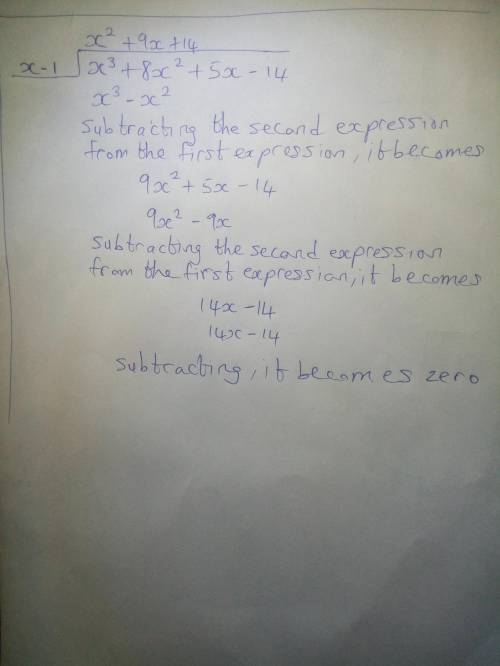 x² + 9x + 14
x - 1 x³ + 8x² + 5x - 14
x³ - x²
Subtracting the second expression
from the first expression, it becomes
9x² + 5x - 14
9x² - 9x
Subtracting the second expression
from the first expression, it becomes
14x - 14
14x - 14
Subtracting, it becomes zero